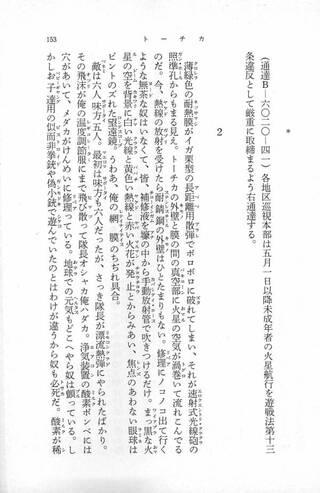 153 トーチカ
＊
（通達B―六〇二〇―四一）各地区監視本部は五月一日以降未成年者の火星航行を遊戯法第十三
条違反として厳重に取締まるよう右通達する。
2
薄緑色の耐熱膜がイガ栗型の長距離用散弾でボロボロに破れてしまい、それが速射式光線砲の
照準孔からもまる見え。トーチカの外壁と膜の間の真空部に火星の空気が渦巻いて流れこんでる
のだ。今、熱線の放射を受けたら耐錆鋼の外壁はひとたまりもない。修理にノコノコ出て行く
ような無茶な奴はいなくて、皆、補修液を壕の中から手動放射管で吹きつけるだけ。まっ黒な火
星の空を背景に白い光線と黄色い熱線と赤い火花が発止とからみあい、焦点のあわない眼球は
ピントのズレた望遠鏡。うわあ、俺の網膜のちぢれ具合。
敵は六人味方五人。最初は味方も六人だったが、さっき隊長が漂流熱弾にやられたばかり。
その飛沫が俺の温度調節服にまで飛び散って隊長オシャカ俺ハダカ。浄気装置の酸素ボンベには
穴があいて、メダカがけんめいに修理っている。地球での元気もどこへやら奴は顫っている。し
かしお子達用の似而非拳銃や偽小銃で遊んでいたのとはわけが違うから奴も必死だ。酸素が稀